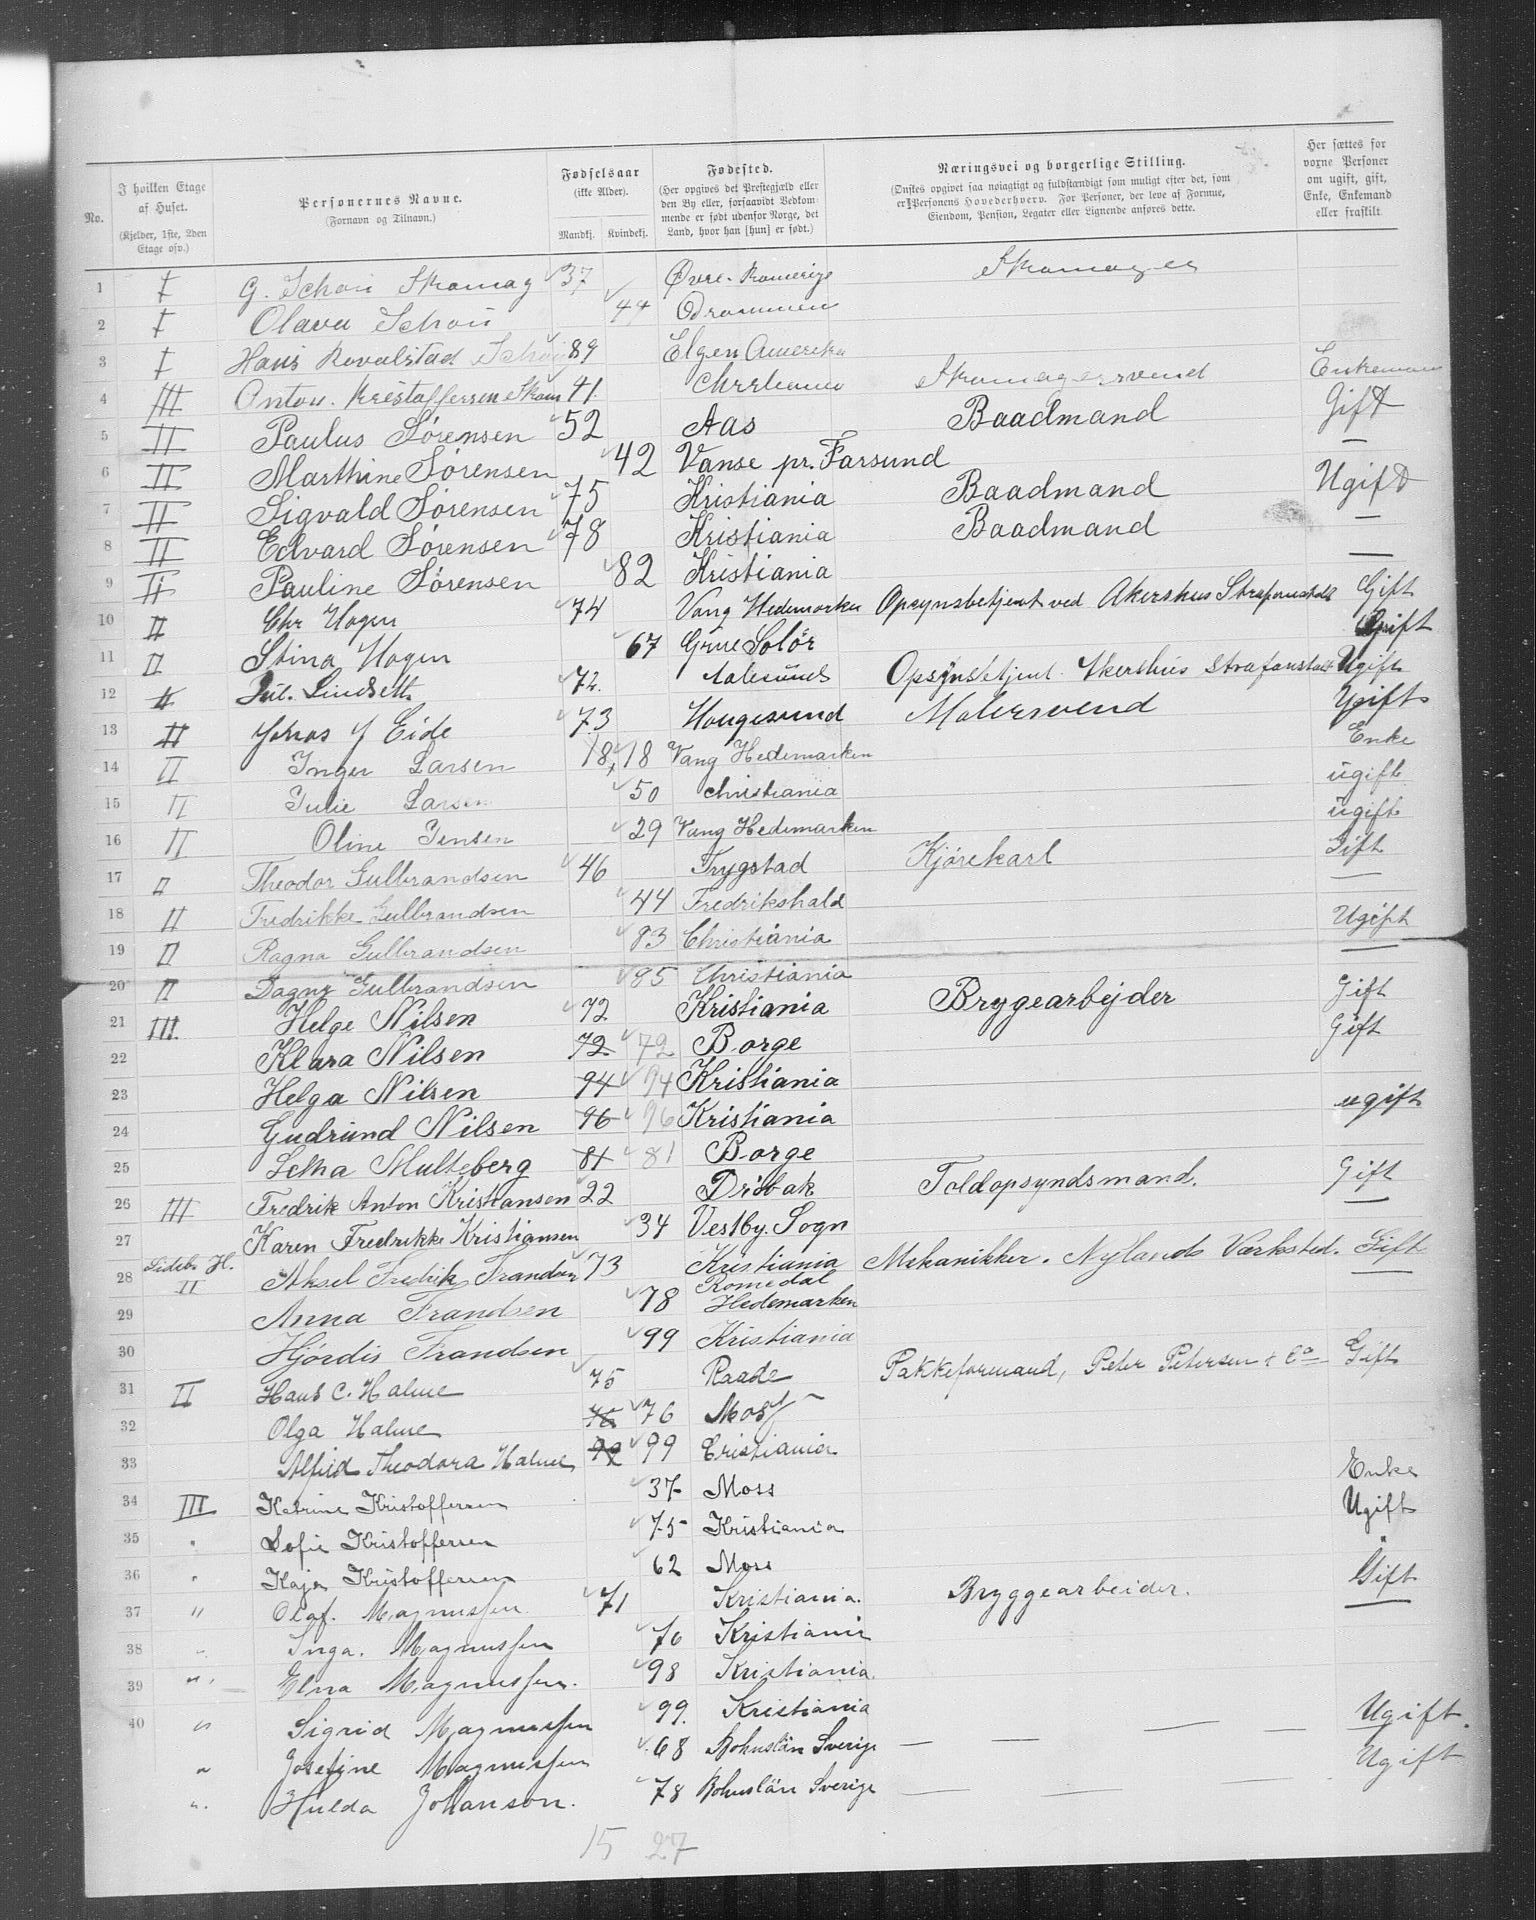 No.
I hvilken Etage af Huset. (Kjelder, 1ste, 2den Etage osv.)
Personernes Navne. (Fornavn og Tilnavn.)
Fødselsaar (ikke Alder). Mandkj. Kvindekj.
Fødested. (Her opgives det Prestegjæld eller den By eller, forsaavidt Bedkommende er født udenfor Norge, det Land, hvor han [hun] er født.)
Næringsvei og borgerlige Stilling. (Ønskes opgivet saa nøiagtigt og fuldstændigt som muligt efter det, som er Personens Hovederhverv. For Personer, der leve af Formue, Eiendom, Pension, Legater eller Lignende anføres dette.
Her sættes for voxne Personer om ugift, gift, Enke, Enkemand eller fraskilt
1 I G. Schou Skomag 37 Øvre-Romerige Skomager
2 I Olava Schou 44 Drammen
3 I Hans Rovalstad 89 Elgen Amerika
4 III Anton Kristoffersen Skom 41 Skomagersvend Enkemand
5 II Paulus Sørensen 52 Aas Baadmand Gift
6 II Marthine Sørensen 42 Vanse pr. Farsund —
7 II Sigvald Sørensen 75 Kristiania Baadmand Ugift
8 II Edvard Sørensen 78 Kristiania Baadmand —
9 II Pauline Sørensen 82 Kristiania —
10 II Chr Hagen 74 Vang Hedemarken Opsynsbetjent ved Akershus Strafanstalt Gift
11 II Stina Hagen 67 Grue Solør Gift
12 II Jul. Lindseth 72. Aalesund Opsynsbetjent Akershus Strafanstalt Ugift
13 II Johas J Eide 73 Haugesund Malersvend Ugift
14 II Inger Larsen 18 18 Vang Hedemarken Enke
15 II Julie Larsen 50 christiania ugift
16 II Oline Jensen 29 Vang Hedemarken ugift
17 II Theodor Gulbrandsen 46 Trygstad Kjørekarl Gift
18 II Fredrikke Gulbrandsen 44 Fredrikshald —
19 II Ragna Gulbrandsen 83 Christiania Ugift
20 II Dagny Gulbrandsen 85 Christiania —
21 III Helge Nilsen 72 Kristiania Bryggearbejder Gift
22 Klara Nilsen 72 72 Borge Gift
23 Helga Nilsen 94 94 Kristiania
24 Gudrund Nilsen 96 96 Kristiania ugift
25 Multeberg 81 81 Borge
26 III Fredrik Anton Kristiansen 22 Drøbak Toldopsyndsmand. Gift
27 Karen Fredrikke Kristiansen 34 Vestby. Sogn —
28 Sideb. H. II Aksel Fredrik Frandsen 73 Kristiania Mekanikker. Nylands Værksted. Gift
29 Anna Frandsen 78 Romedal Hedemarken —
30 Hjørdis Frandsen 99 Kristiania
31 II Hans C. Halme 75 Raade Pakkeformand, Peter Petersen & Co Gift
32 Olga Halme 76 76 Moss
33 Alfild Theodora Halme 99 99 Cristiania
34 III Katrine Kristoffersen 37 Moss Enke
35 " Sofie Kristoffersen 75 Kristiania Ugift
36 " Kaja Kristoffersen 62 Moss "
37 " Olaf. Magnussen 71 Kristiania. Bryggearbeider. Gift
38 " Inga. Magnussen 76 Kristiania —
39 " Elna Magnussen. 98 Kristiania.
40 " Sigrid Magnussen 99. Kristiania
" Josefine Magnussen 68 Bohuslän Sverige — — — — Ugift.
" Hulda Johanson. 78 Bohuslän Sverige — — Ugift
15 27